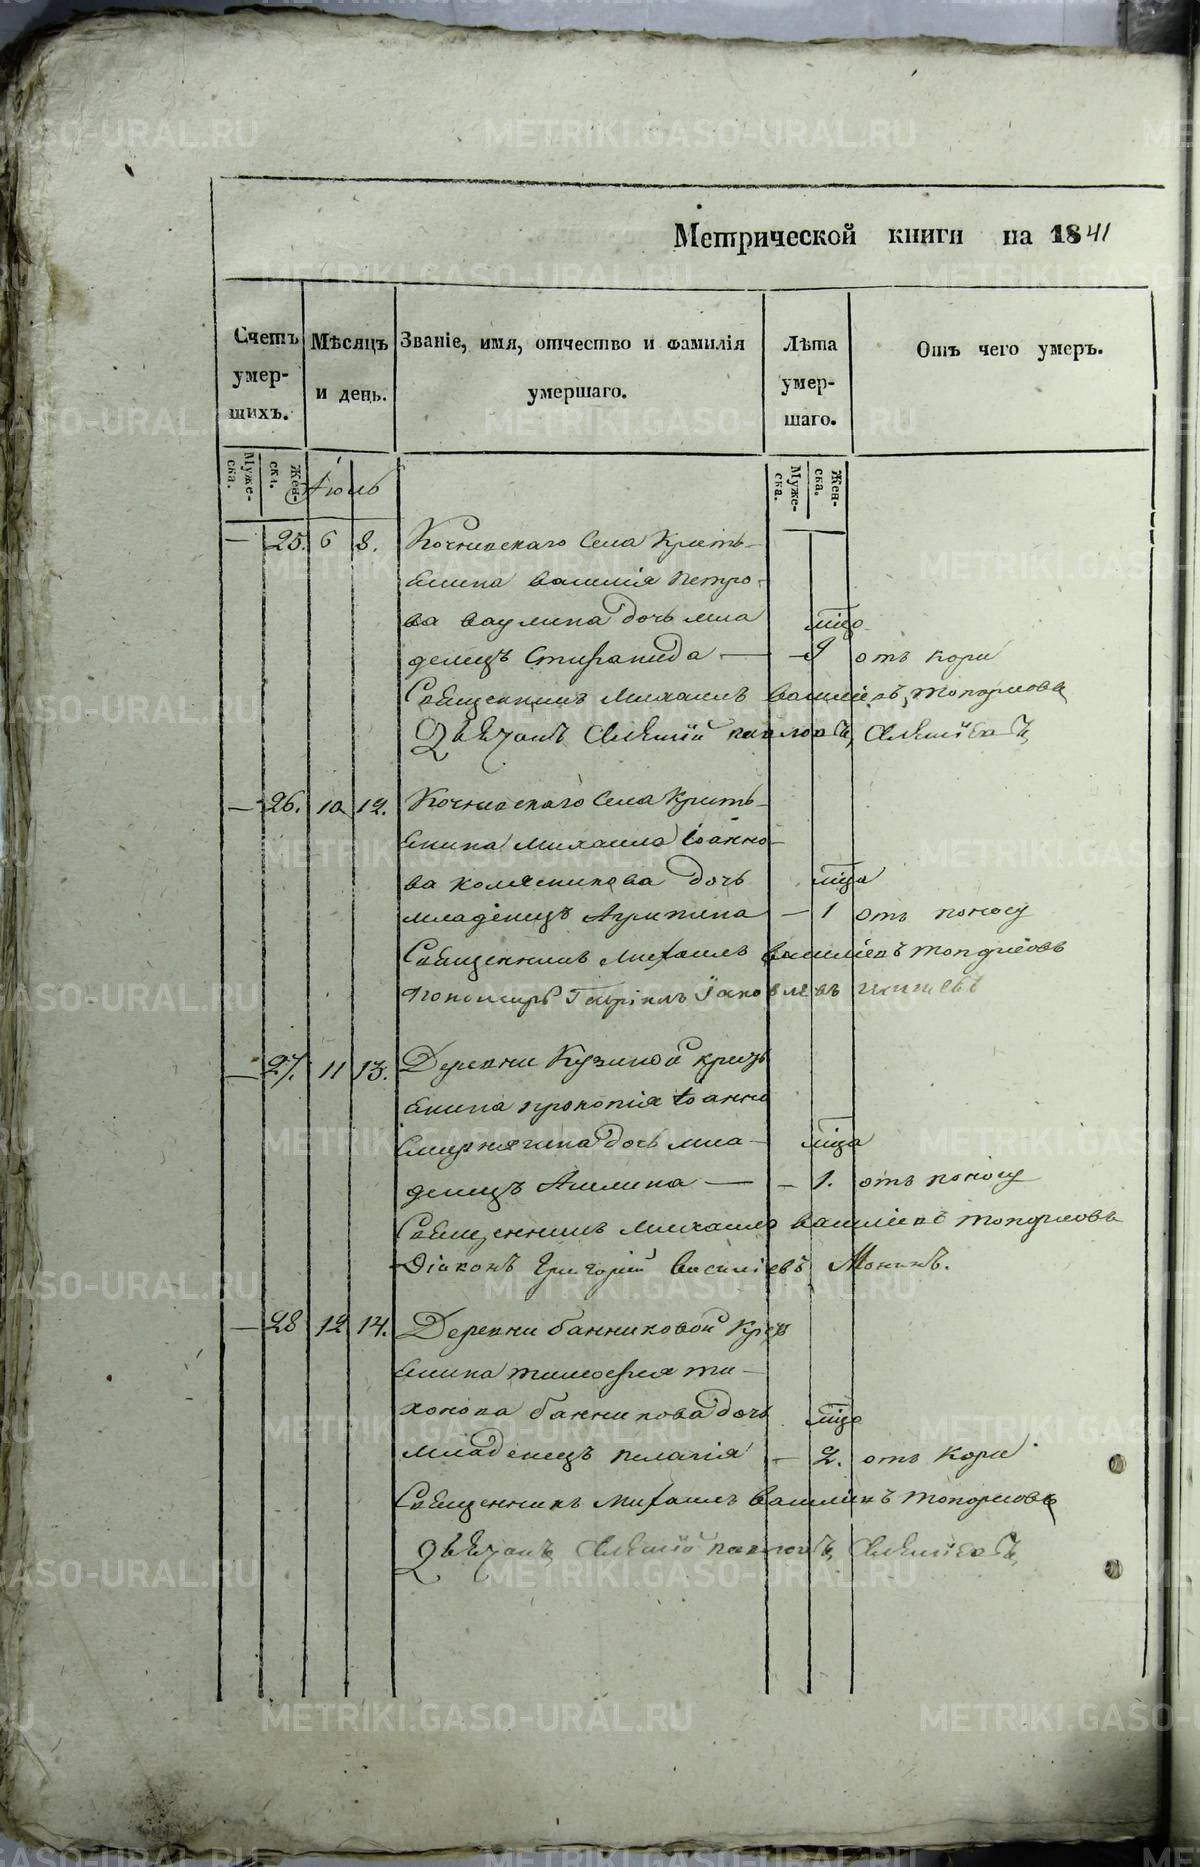 Метрической книги на 1841
Счетъ умер- шихъ.
Мѣсяцъ и день.
Званіе, имя, отчество и фамилія умершаго.
Лѣта умер- шаго.
Отъ чего умеръ.
Муже- ска.
Жен- ска.
Іюль
Муже- ска.
Жен- ска.
— 25. 6 8. Кочневскаго Села Кресть-
янина Василия Петро-
ва Ваулина дочь мла мца
денецъ Стефанида — — 9 отъ кори
Священникъ Михаилъ Васильевъ Топорковъ
Алексій Павловъ,
— 26. 10 12. Кочневскаго Села Кресть-
янина Михаила Іоанно-
ва Колясникова дочь мца
младенецъ Агрипина — 1 отъ поносу
Священникъ Михаилъ Васильевъ Топорковъ
Пономарь Гавріилъ Іаковлевъ
— 27. 11 13. Деревни Кузиной кресть
янина Прокопія Іоанно
Смирнягина дочь мла- мца
денецъ Акилина — — 1. отъ поносу
Священникъ Михаилъ Васильевъ Топорковъ
Діаконъ Григорий Василіевъ
— 28 12 14. Деревни Банниковой Крес
янина Тимофея Ти-
хонова Банникова дочь мца
младенецъ Пелагія — 2. отъ Кори
Священникъ Михаилъ Васильевъ Топорковъ
Алексій Павловъ,
METRIKI.GASO-URAL.RU